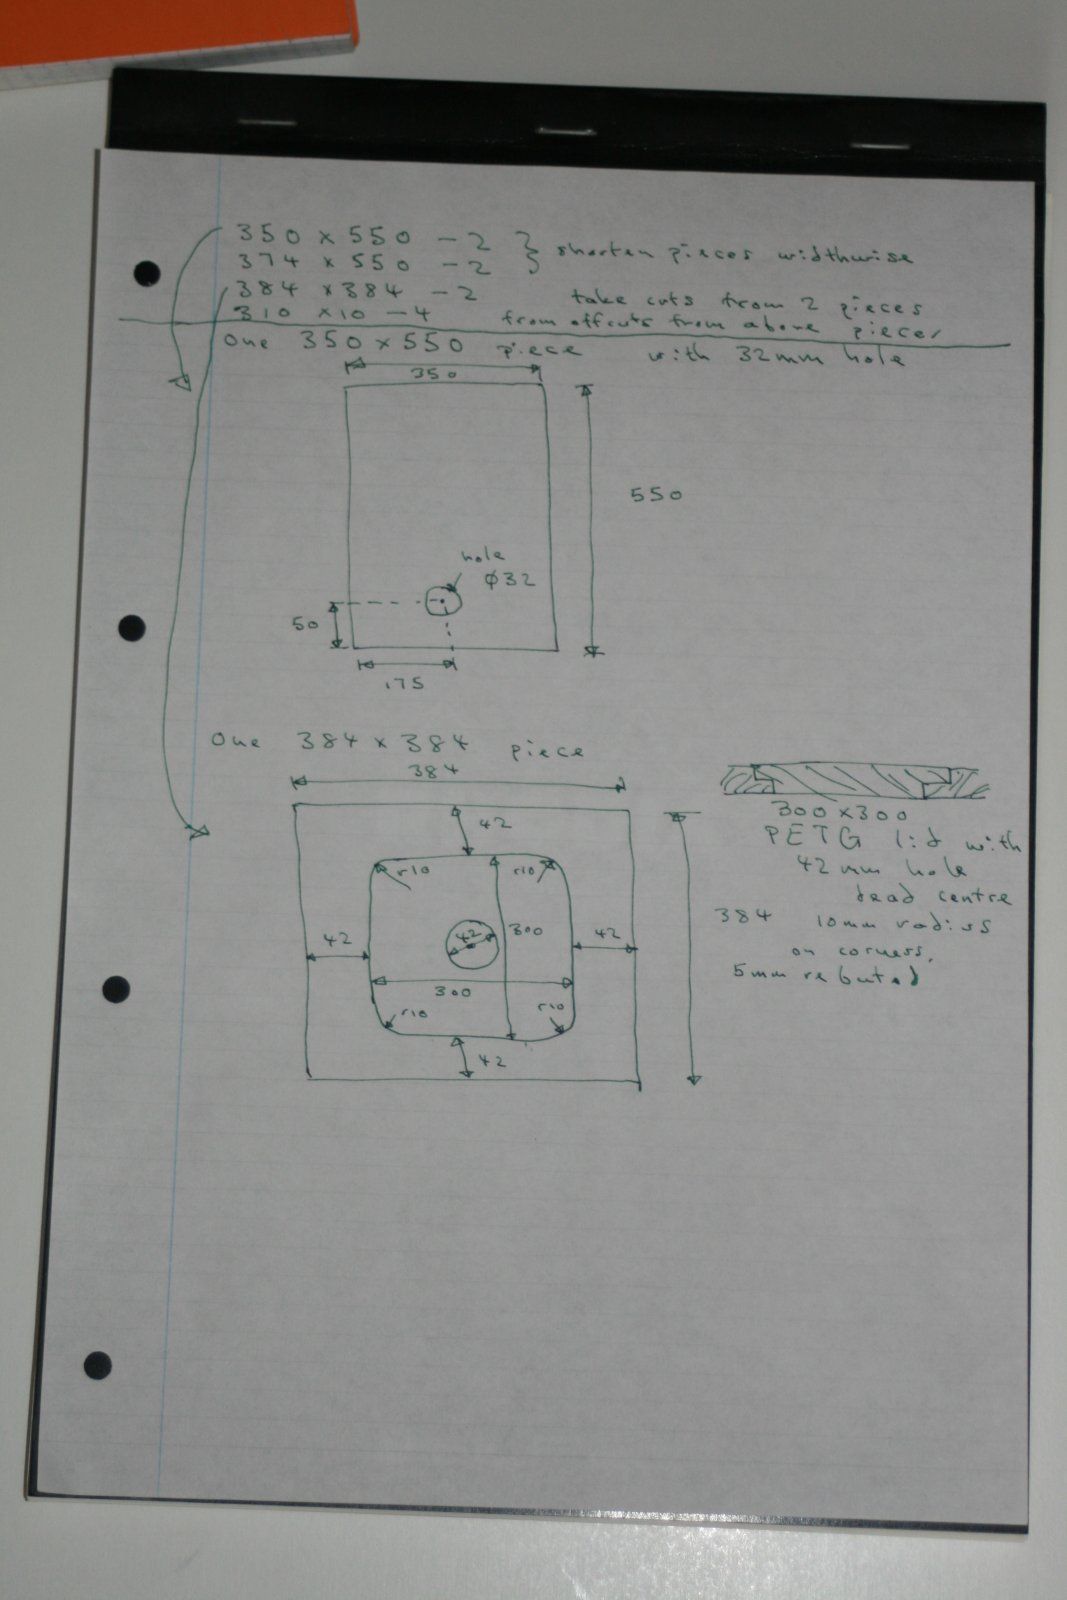 350 × 550 – 2 } shorten pieces widthwise
374 × 550 – 2
384 × 384 – 2 take cuts from 2 pieces
310 × 10 – 4 from offcuts from above pieces
One 350 × 550 piece with 32mm hole
350
550
hole
ϕ32
50
175
One 384 × 384 piece
384
300 × 300
42
PETG lid with
r10
r10
42 mm hole
dead centre
384
10mm radius
42
42
300
42
on corners,
300
5mm rebuted
r10
r10
42